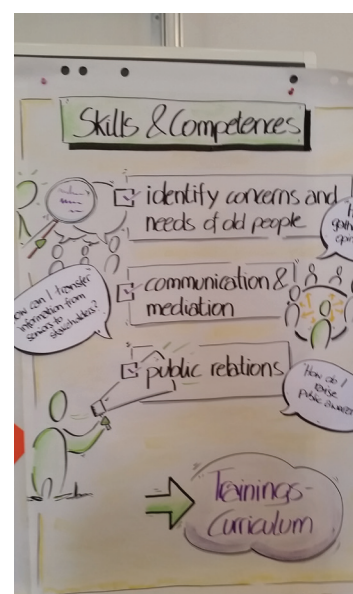 Skills & Competences
identify concerns and
needs of old people
communication &
mediation
How can I transfer
information from
seniors to
stakeholders?
public relations
How do I
raise
public
Trainings-
Curriculum